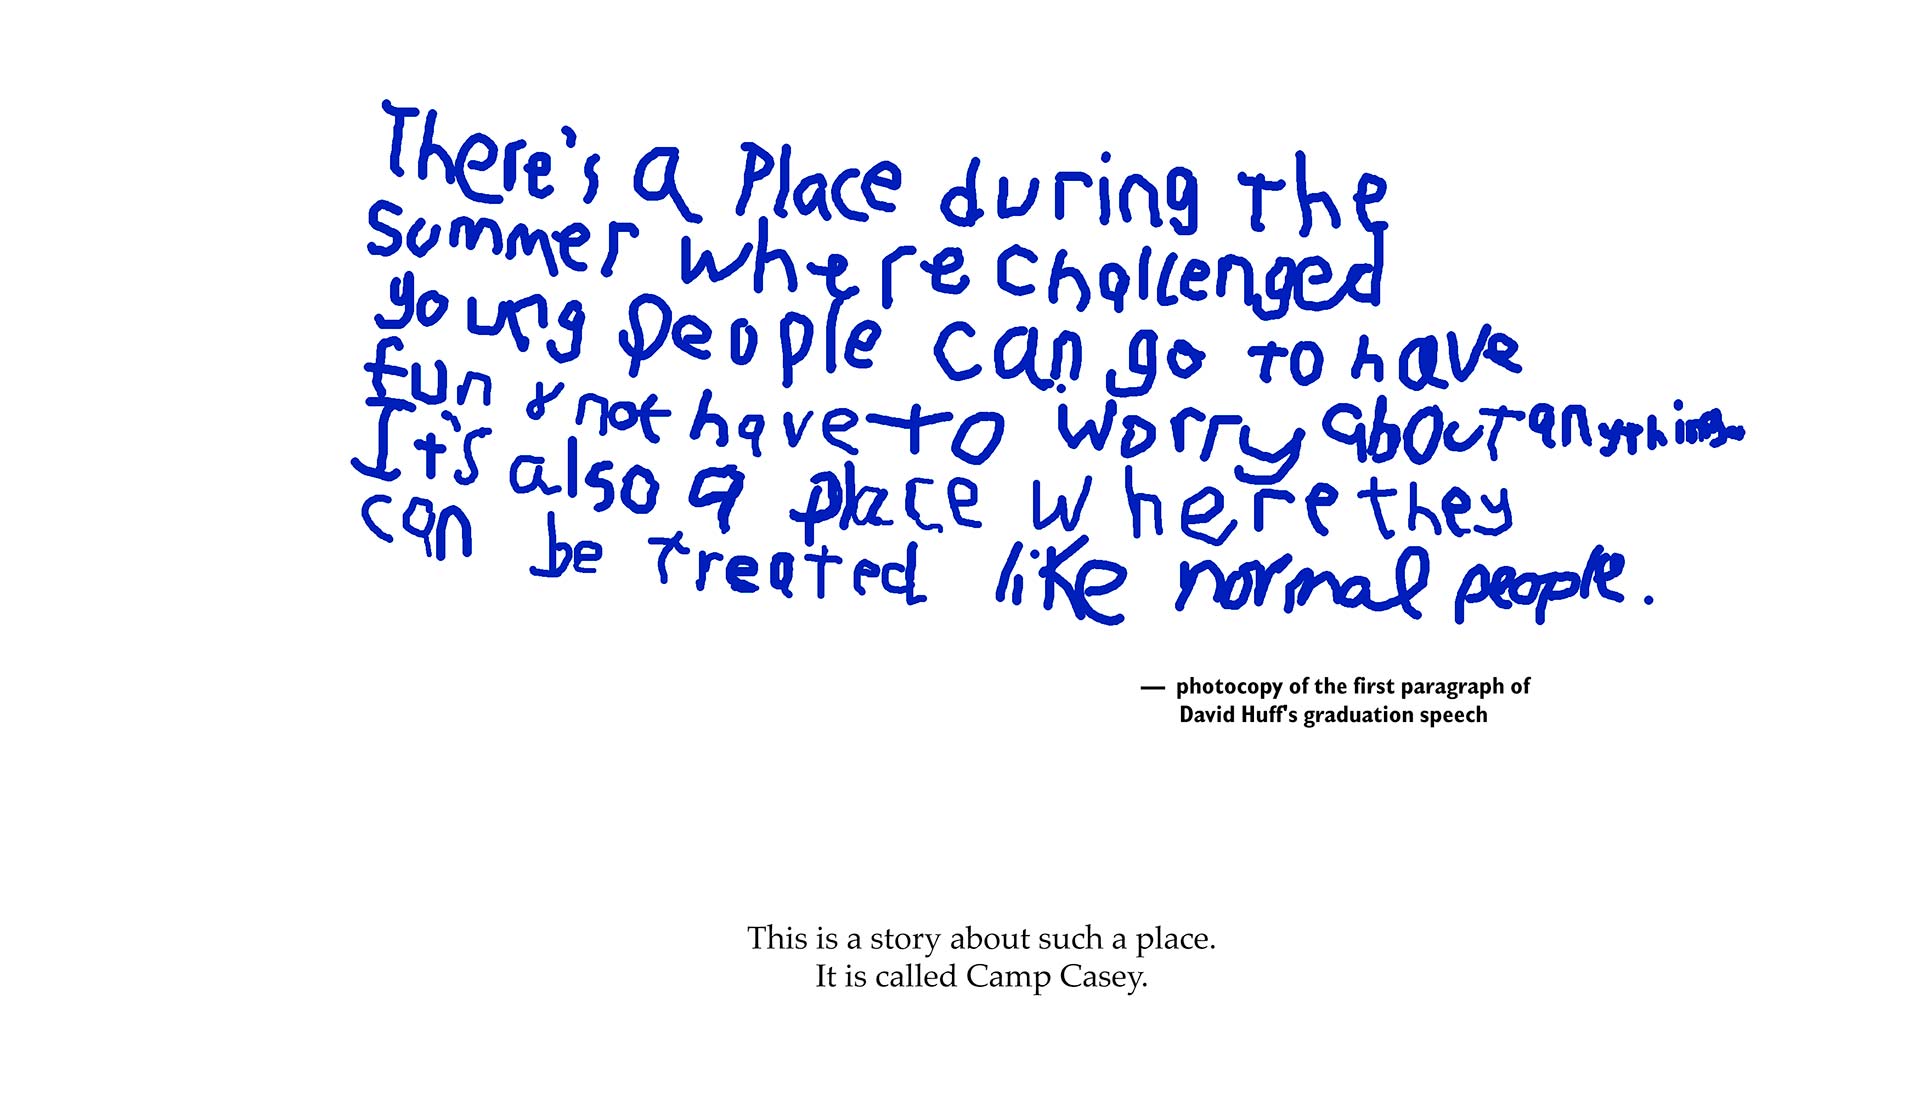 There's a Place during the
summer where challenged
young people can go to have
fun & not have to worry about anything.
It's also a place where they
can be treated like normal people.
— photocopy of the first paragraph of
David Huff's graduation speech
This is a story about such a place.
It is called Camp Casey.